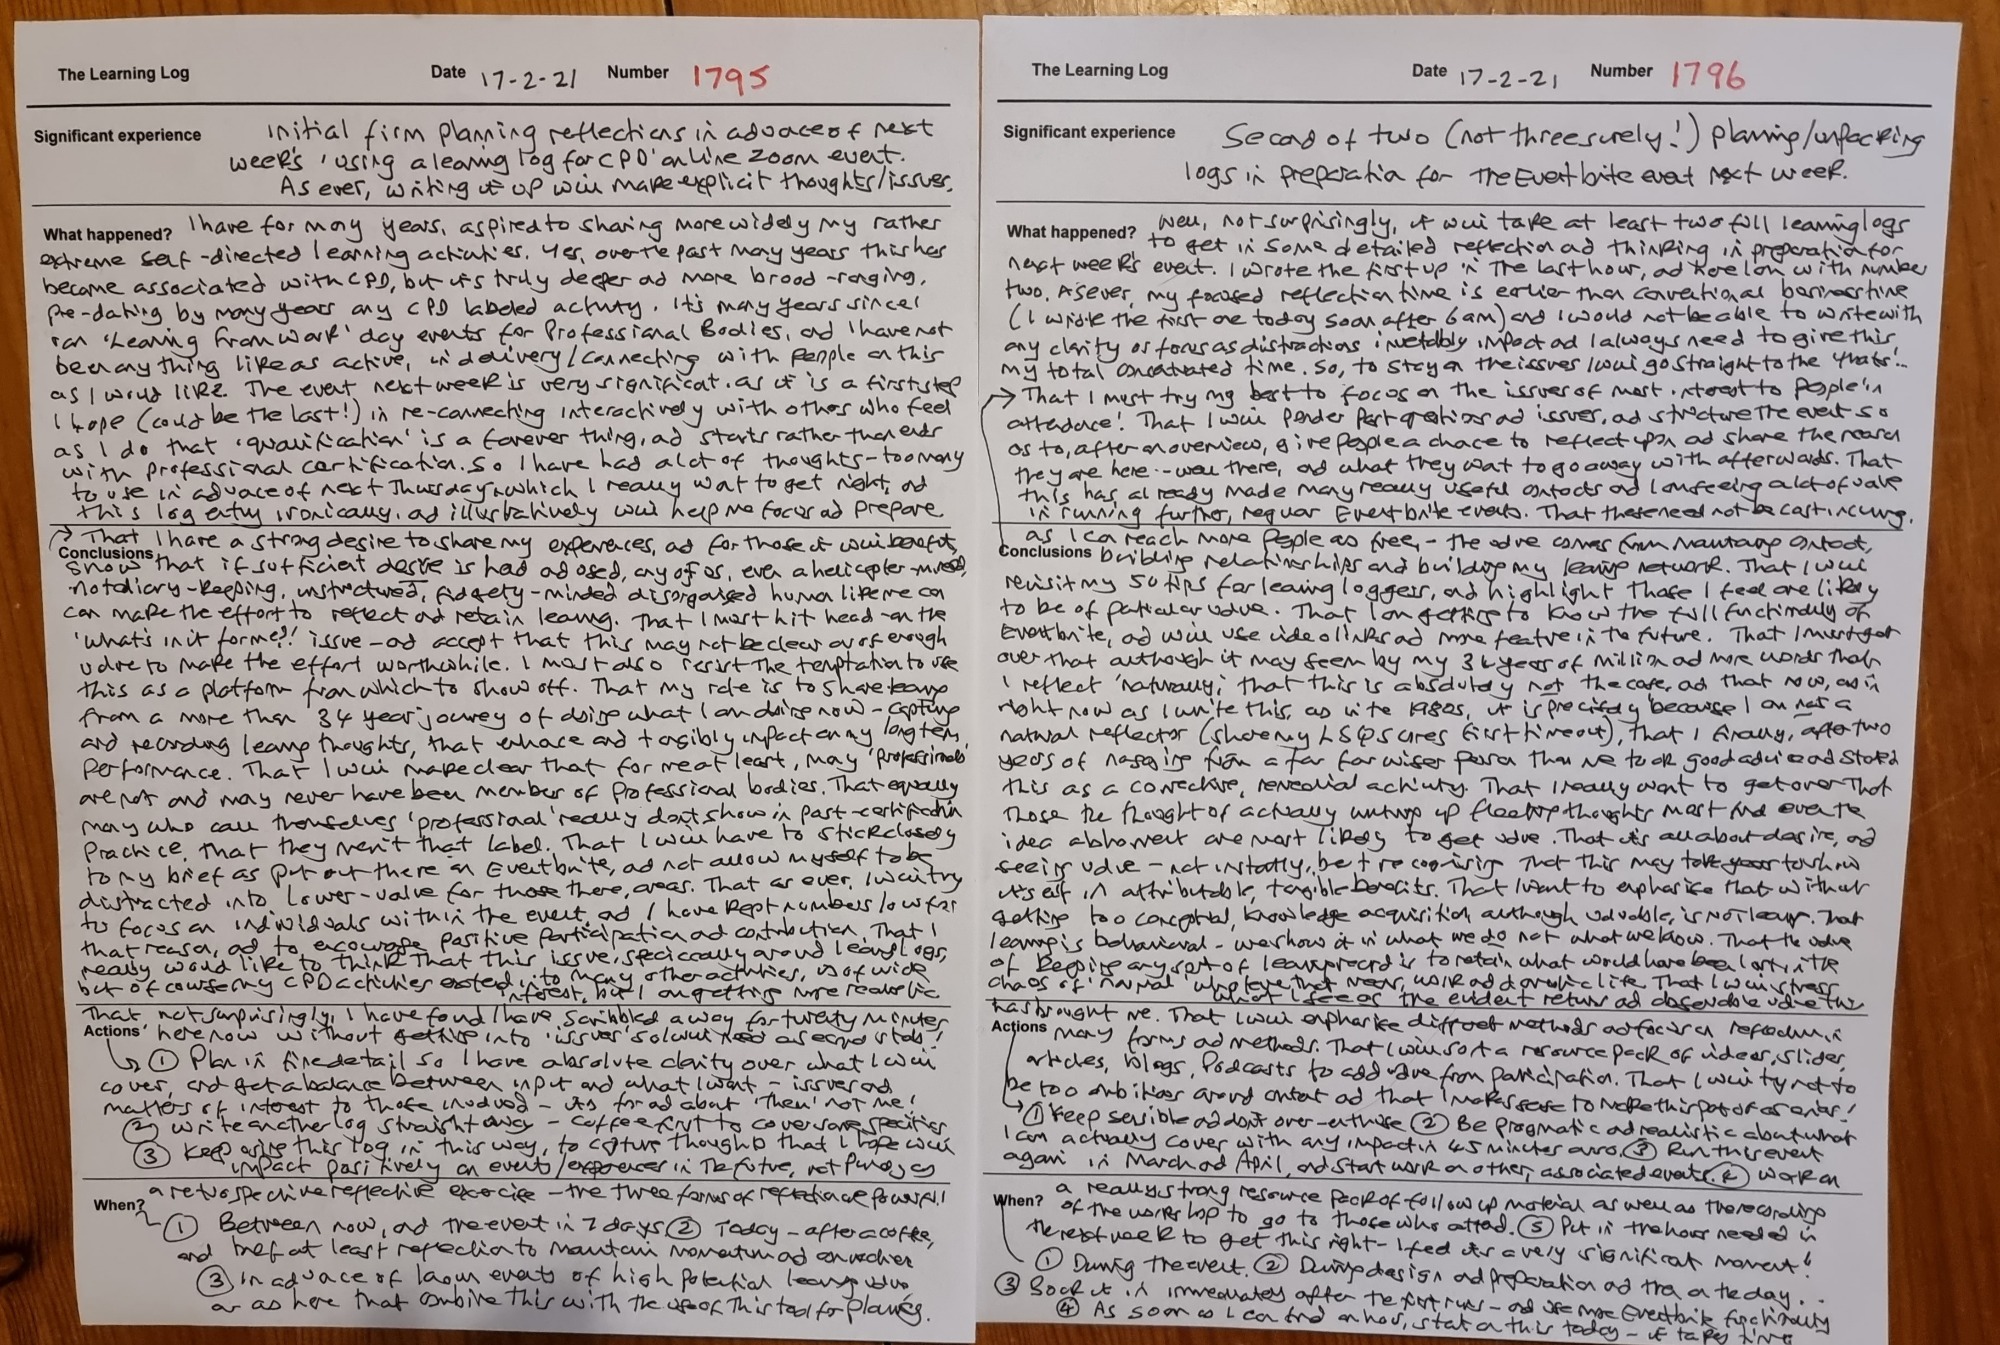 The Learning Log Date 17-2-21 Number 1795
Significant experience Initial firm planning reflections in advance of next
week's 'using a learning log for CPD' online Zoom event.
As ever, writing it up will make explicit thoughts/issues.
What happened? I have for many years, aspired to sharing more widely my rather
extreme self-directed learning activities. Yes, over the past many years this has
became associated with CPD, but it's truly deeper and more broad-ranging,
pre-dating by many years any CPD labeled activity. It's many years since I
ran 'Learning from Work' day events for Professional Bodies, and I have not
been anything like as active, in delivery/connecting with people on this
as I would like. The event next week is very significant, as it is a first step
I hope (could be the last!) in re-connecting interactively with others who feel
as I do that 'qualification' is a forever thing, and starts rather than ends
with professional certification. So I have had a lot of thoughts - too many
to use in advance of next Thursday, which I really want to get right, and
this log entry ironically, and illustratively will help me focus and prepare
→ That I have a strong desire to share my experiences, and for those it will benefit,
Conclusions show that if sufficient desire is had and used, any of us, even a helicopter-minded,
not diary-keeping, unstructured, fidgety-minded disorganised human like me can
can make the effort to reflect and retain learning. That I must hit head-on the
'what's in it for me?!' issue - and accept that this may not be clear or of enough
value to make the effort worthwhile. I must also resist the temptation to use
this as a platform from which to show off. That my role is to share learning
from a more than 34 year journey of doing what I am doing now - capturing
and recording learning thoughts, that enhance and tangibly impact on my long term
performance. That I will make clear that for me at least, many 'professionals'
are not and may never have been member of professional bodies. That equally
many who call themselves 'professional' really don't show in past-certification
practice, that they merit that label. That I will have to stick closely
to my brief as put out there on Eventbrite, and not allow myself to be
distracted into lower-value for those there, areas. That as ever, I will try
to focus on individuals within the event, and I have kept numbers low for
that reason, and to encourage positive participation and contribution. That I
really would like to think that this issue, specifically around learning logs,
but of course my CPD activities extend into many other activities, is of wide
interest, but I am getting more realistic
That not surprisingly, I have found I have scribbled away for twenty minutes
Actions here now without getting into 'issues' so I will need a second stab!
↳ ① Plan in fine detail so I have absolute clarity over what I will
cover, and get a balance between input and what I want - issues and
matters of interest to those involved - it's for and about 'them' not me!
② Write another log straight away - coffee first to cover some specifics
③ Keep using this log in this way, to capture thoughts that I hope will
impact positively on events/experiences in the future, not purely as
a retrospective reflective exercise - the three forms of reflection are powerful!
When?
① Between now, and the event in 7 days ② Today - after a coffee,
and brief at least reflection to maintain momentum and
③ In advance of known events of high potential learning value
or as here that combine this with the use of this tool for planning.
The Learning Log Date 17-2-21 Number 1796
Significant experience Second of two (not three surely!) planning/unpacking
logs in preparation for the Eventbrite event next week.
What happened? Well, not surprisingly, it will take at least two full learning logs
to get in some detailed reflection and thinking in preparation for
next week's event. I wrote the first up in the last hour, and here I am with number
two. As ever, my focused reflection time is earlier than conventional business time
(I wrote the first one today soon after 6am) and I would not be able to write with
any clarity or focus as distractions inevitably impact and I always need to give this
my total concentrated time. So, to stay on the issues I will go straight to the 'thats'!..
→ That I must try my best to focus on the issues of most interest to people in
attendance! That I will ponder past questions and issues, and structure the event so
as to, after an overview, give people a chance to reflect upon and share the reason
they are here - well there, and what they want to go away with afterwards. That
this has already made many really useful contacts and I am seeing a lot of value
in running further, regular Eventbrite events. That these need not be cast in
as I can reach more people as free - the value comes from maintaining contact,
Conclusions building relationships and building my learning network. That I will
revisit my 50 tips for learning loggers, and highlight those I feel are likely
to be of particular value. That I am getting to know the full functionality of
Eventbrite, and will use video links and more features in the future. That I must get
over that although it may seem by my 34 years of million and more words that
I reflect 'naturally', that this is absolutely not the case, and that now, as in
right now as I write this, as in the 1980s, it is precisely because I am not a
natural reflector (show my LSQ scores first time out), that I finally, after two
years of nagging from a far far wiser person than me took good advice and started
this as a corrective, remedial activity. That I really want to get over that
those the thought of actually writing up fleeting thoughts most find even the
idea abhorrent are most likely to get value. That it's all about desire, and
seeing value - not instantly, but recognising that this may take years to show
itself in attributable, tangible benefits. That I want to emphasise that without
getting too conceptual, knowledge acquisition although valuable, is not learning. That
learning is behavioural - we show it in what we do not what we know. That the value
of keeping any sort of learning record is to retain what would have been lost in the
chaos of 'normal' whatever that means, work and domestic life. That I will stress
what I see as the evident return and observable value this
has brought me. That I will emphasise different methods and focus on reflection in
Actions many forms and methods. That I will sort a resource pack of videos, slides,
articles, blogs, podcasts to add value from participation. That I will try not to
be too ambitious around content and that I make sense to make this part of a series!
→ ① Keep sensible and don't over-enthuse ② Be pragmatic and realistic about what
I can actually cover with any impact in 45 minutes ③ Run this event
again in March and April, and start work on other, associated events. ④ Work on
When? a really strong resource pack of follow up material as well as the recording
of the workshop to go to those who attend. ⑤ Put in the hours needed in
the next week to get this right - I feel it's a very significant moment!
① During the event. ② During design and preparation and then on the day..
③ Sock it in immediately after the first runs - and use more Eventbrite functionality
④ As soon as I can find an hour, start on this today - it takes time